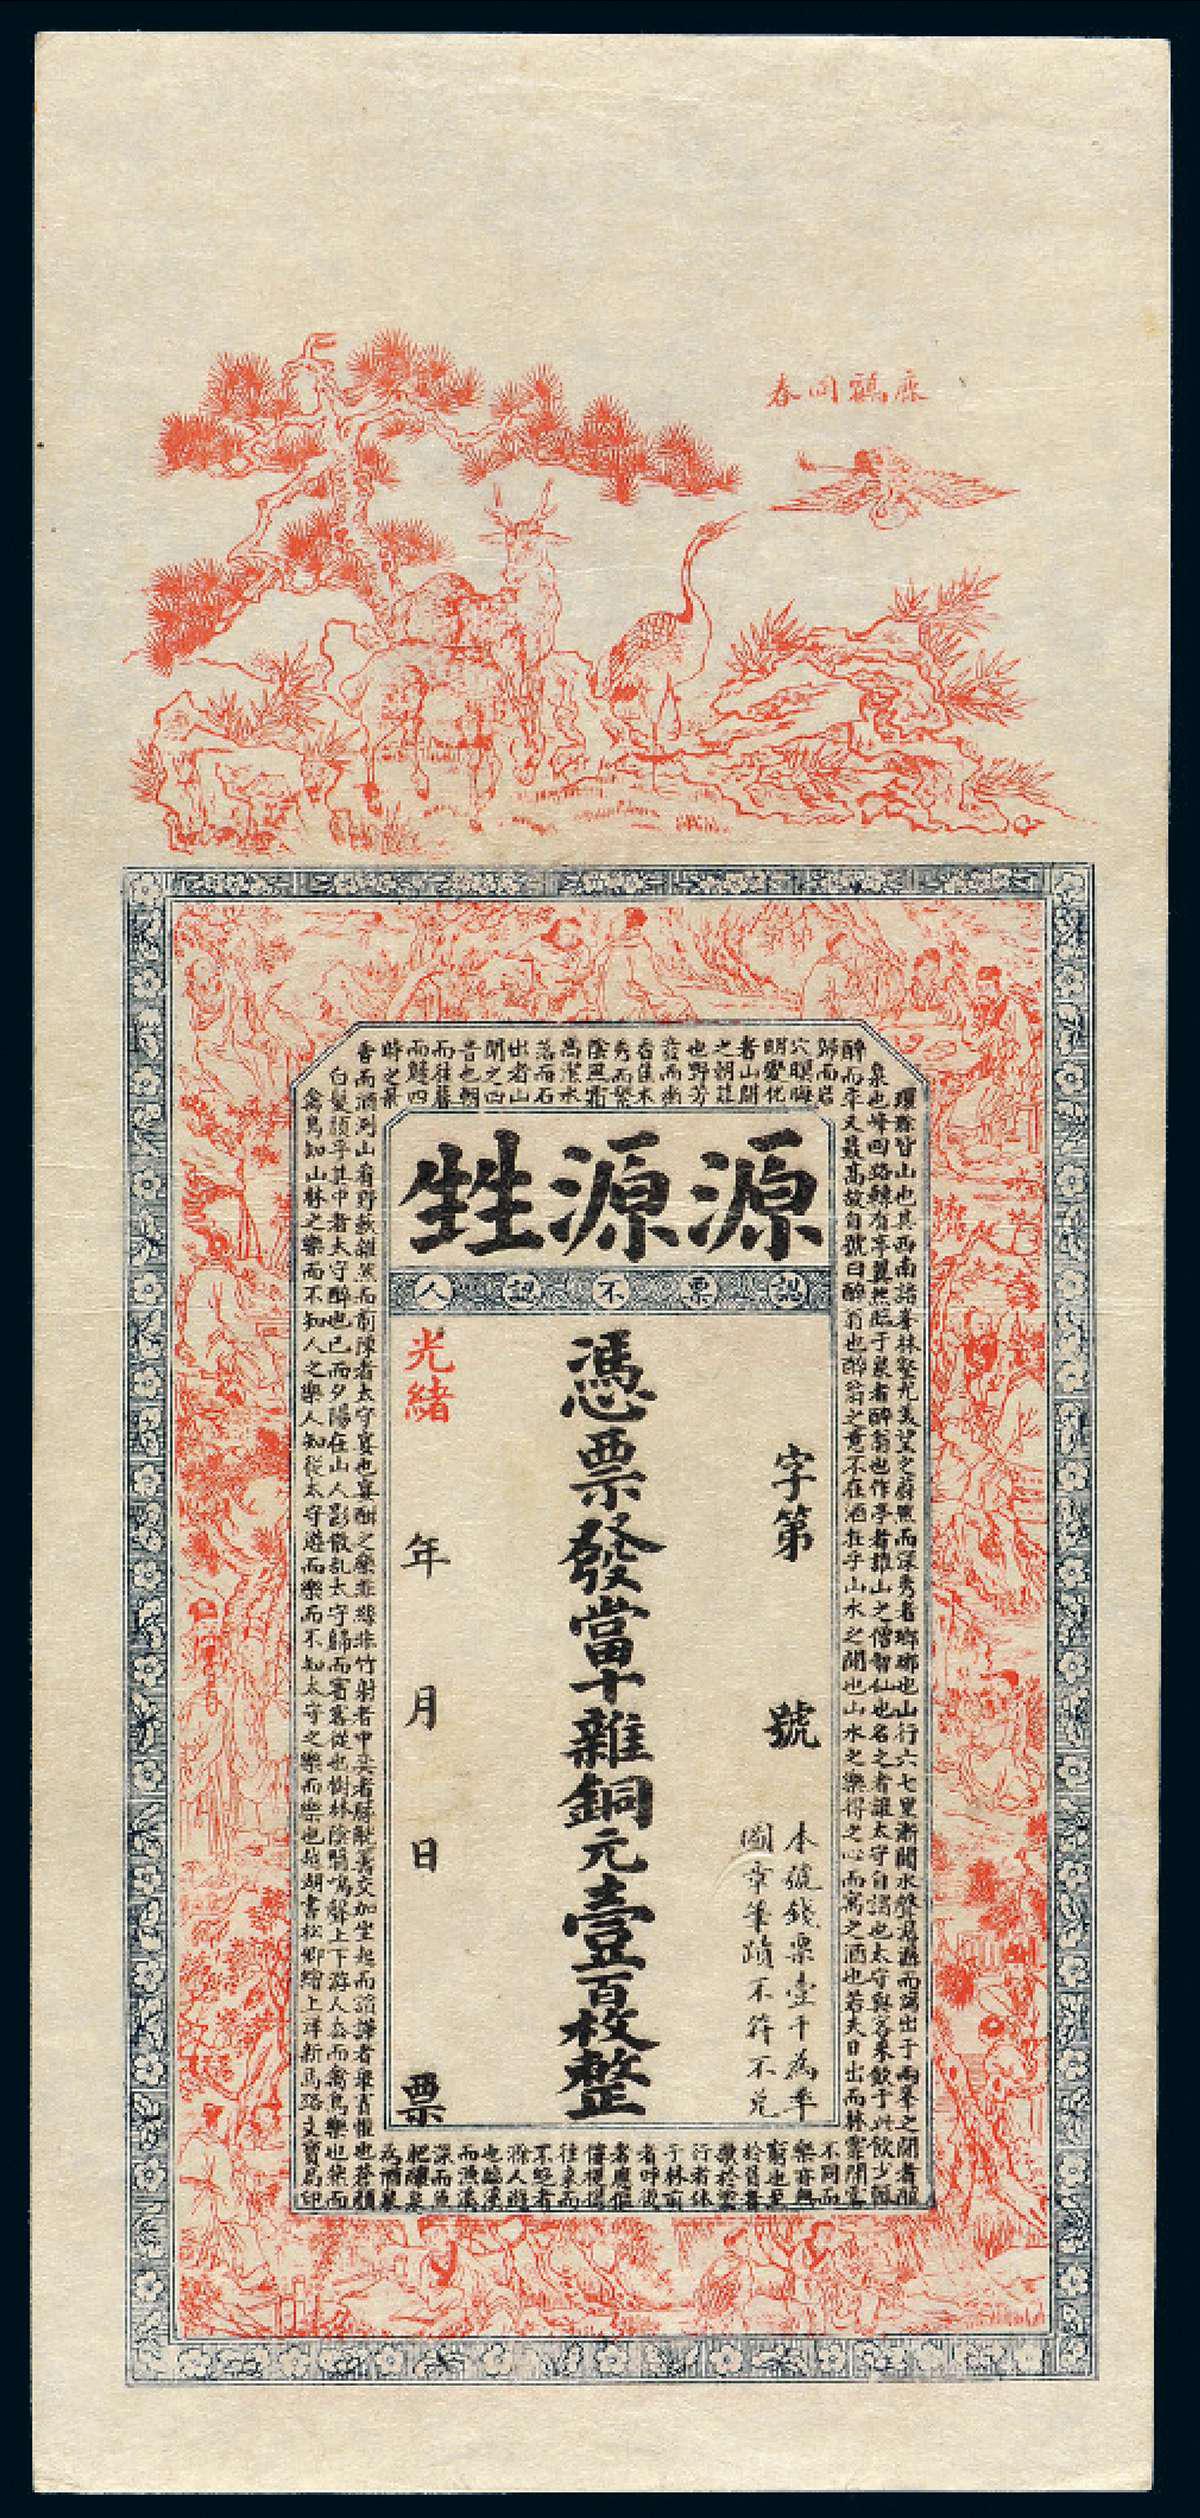 鹿鶴同春
源源甡
認票不認人
字第　號
本號錢票壹千為率
圖章筆蹟不符不兌
憑票發當十雜銅元壹百枚整
光緒　年　月　日　票
環滁皆山也其西南諸峯林壑尤美望之蔚然而深秀者瑯琊也山行六七里漸聞水聲潺潺而瀉出于兩峯之間者釀
泉也峰回路轉有亭翼然臨于泉者醉翁也作亭者誰山之僧智仙也名之者誰太守自謂也太守與客來飲于此飲少輒
醉而年又最高故自號曰醉翁也醉翁之意不在酒在乎山水之間也山水之樂得之心而寓之酒也若夫日出而林霏開雲
歸而岩
穴暝晦
明變化
者山間
之朝莫
也野芳
發而幽
香佳木
秀而繁
陰風霜
高潔水
落而石
出者山
間之四
時也朝
而往暮
而歸四
時之景
不同而
樂亦無
窮也至
於負者
歌於塗
行者休
于樹前
者呼後
者應傴
僂提攜
往來而
不絕者
滁人遊
也臨溪
而漁溪
深而魚
肥釀泉
為酒泉
香而酒洌山肴野蔌雜然而前陳者太守宴也宴酣之樂非絲非竹射者中奕者勝觥籌交加坐起而諠譁者衆賓懽也蒼顏
白髮頹乎其中者太守醉也已而夕陽在山人影散乱太守歸而賓客從也樹林陰翳鳴聲上下游人去而禽鳥樂也然而
禽鳥知山林之樂而不知人之樂人知從太守遊而樂而不知太守之樂而樂也